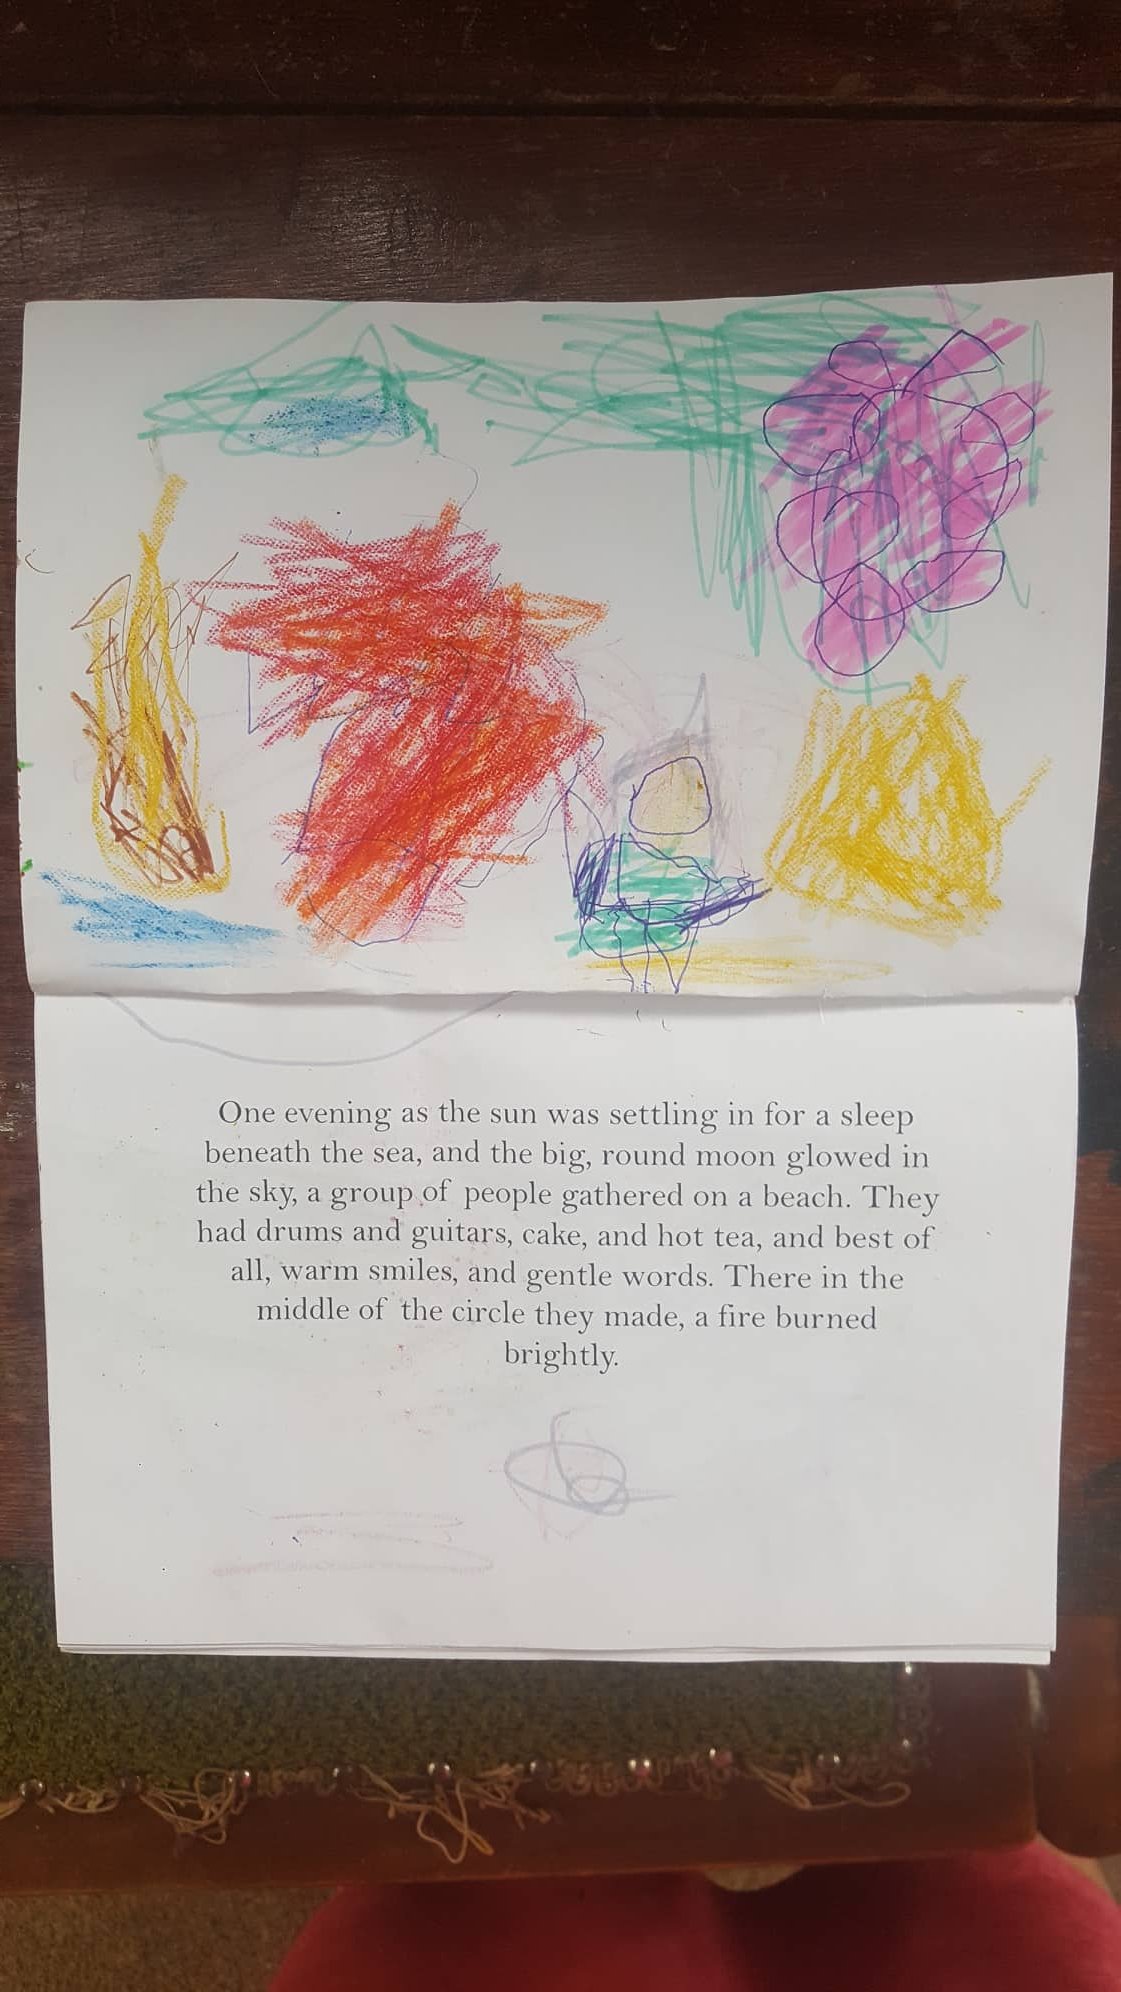 One evening as the sun was settling in for a sleep
beneath the sea, and the big, round moon glowed in
the sky, a group of people gathered on a beach. They
had drums and guitars, cake, and hot tea, and best of
all, warm smiles, and gentle words. There in the
middle of the circle they made, a fire burned
brightly.